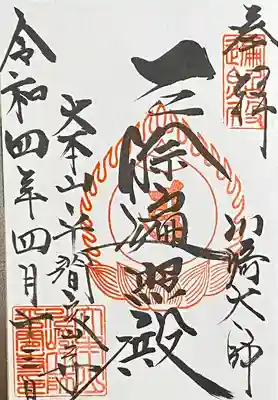 奉拝
川崎大師
厄除遍照殿
大本山平間寺
令和四年四月十三日